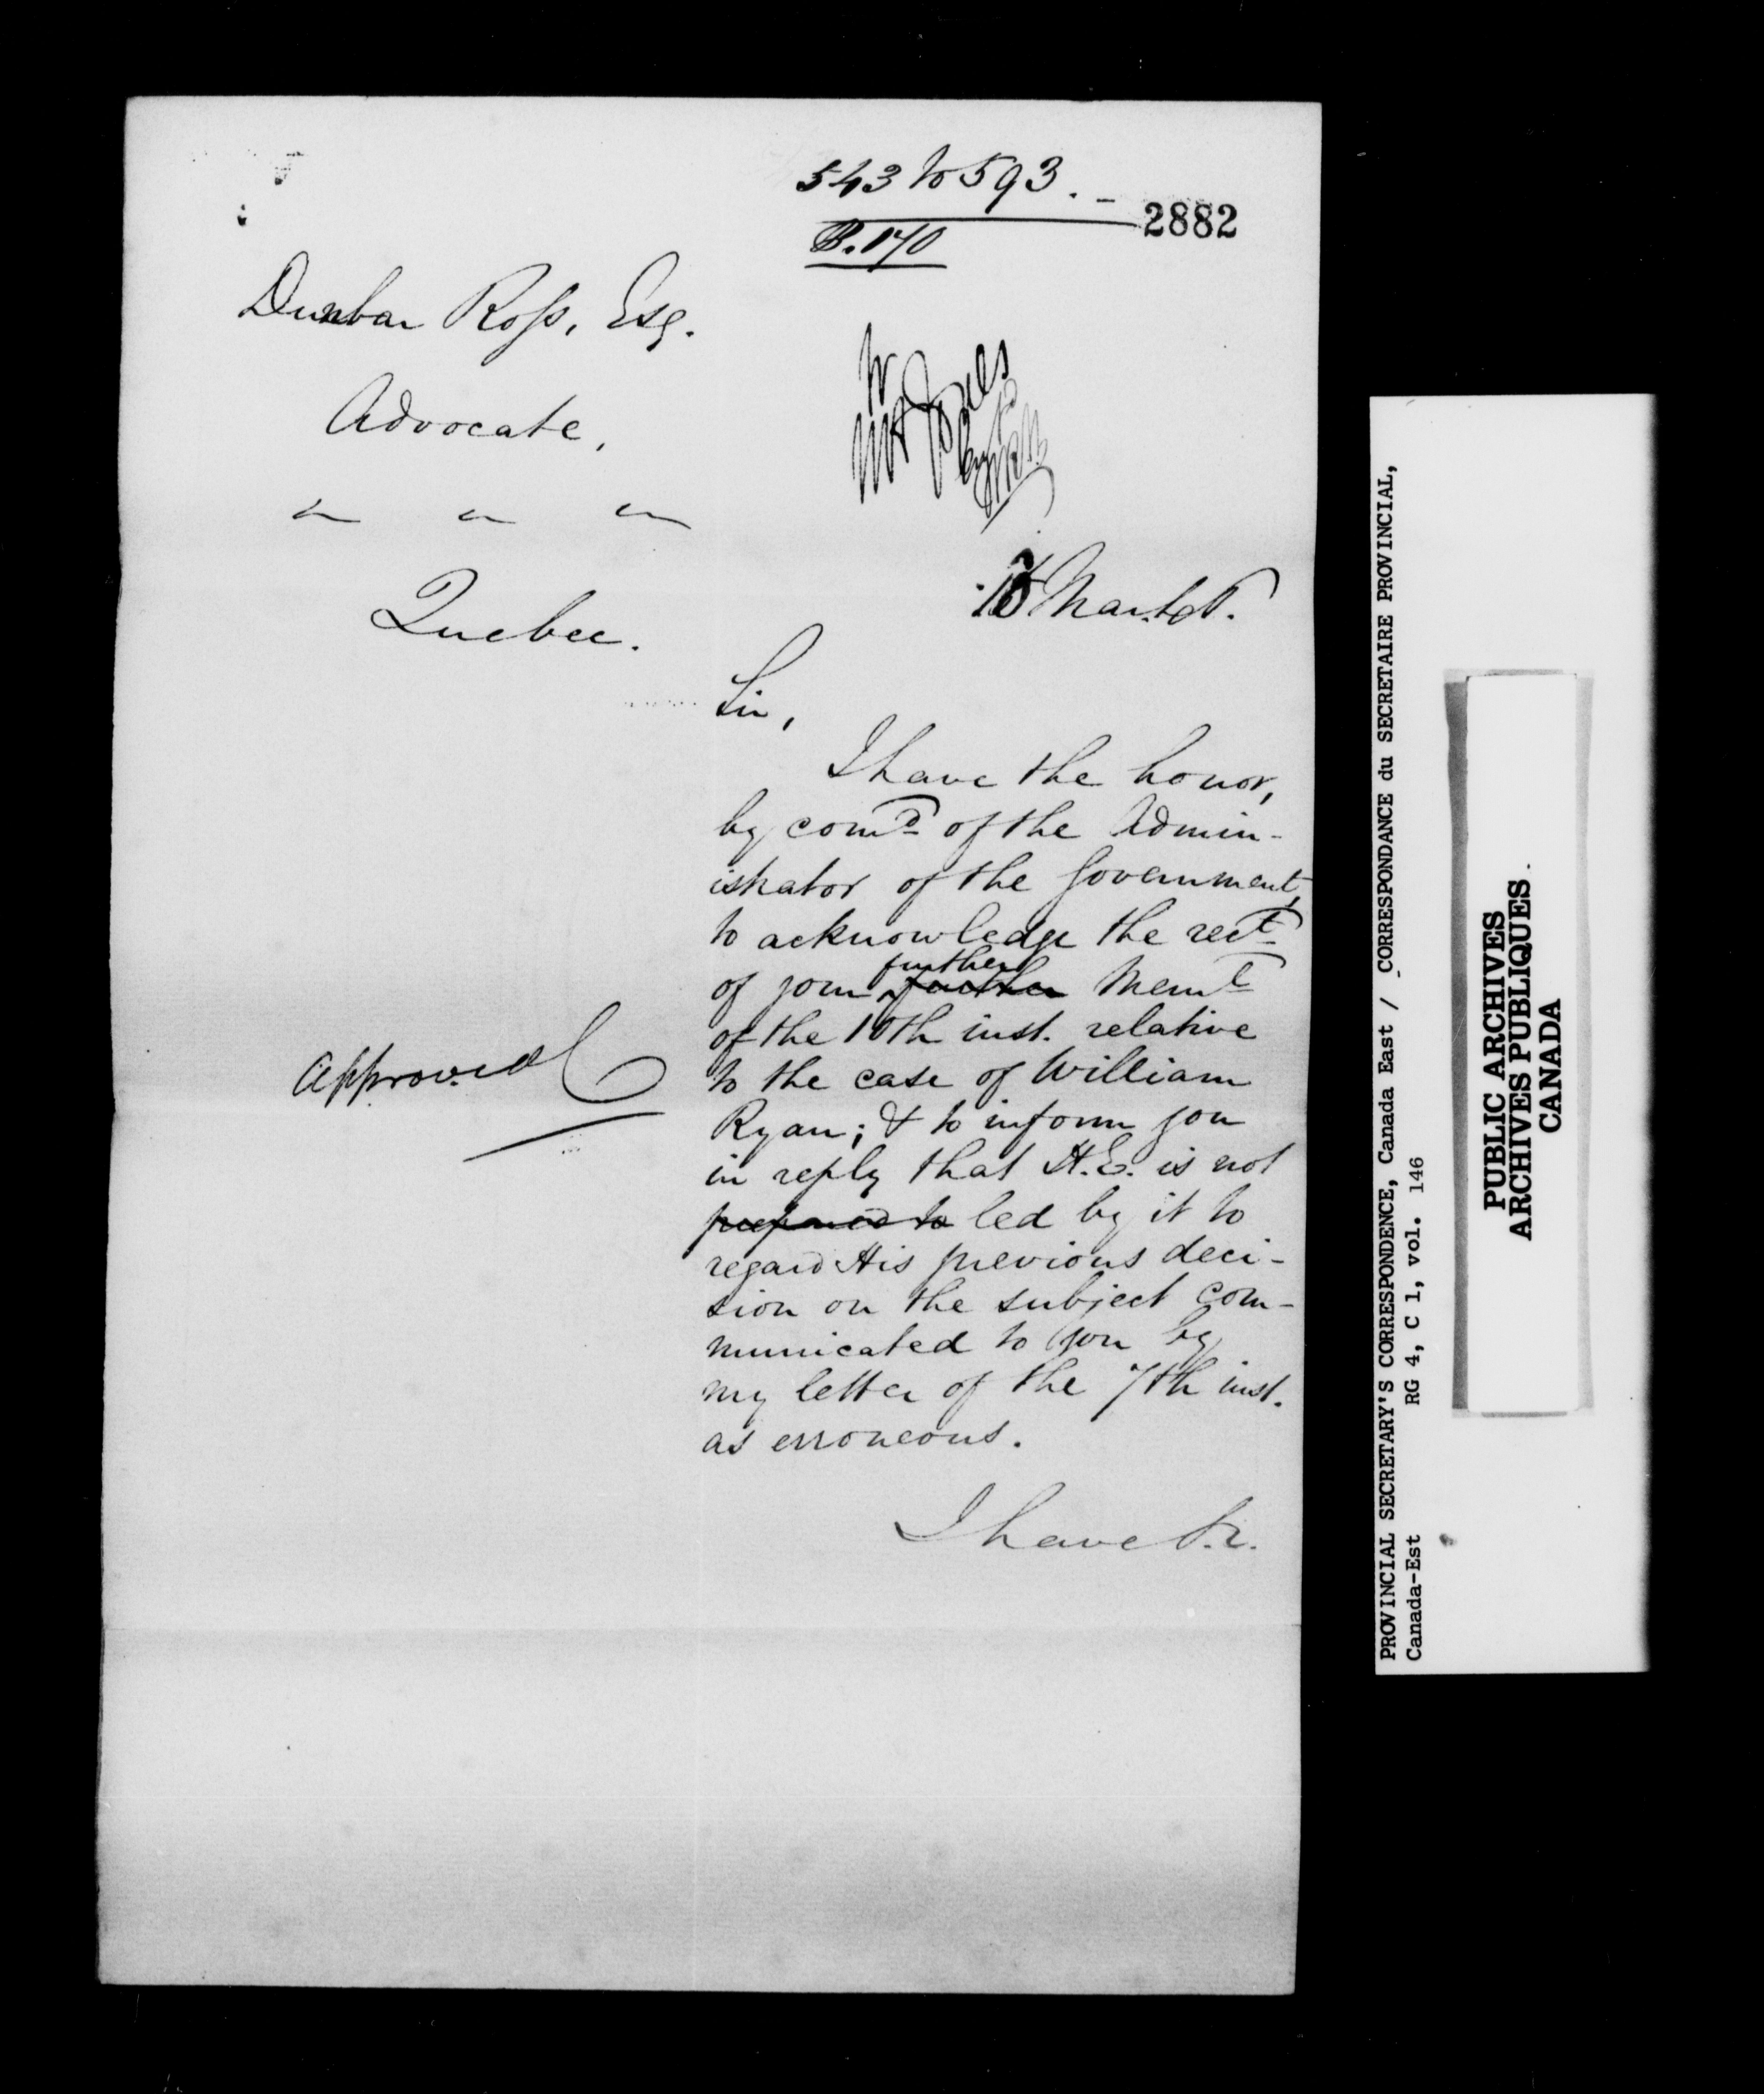 543 to 593. -
2882
B. 170
Dunbar Ross, Esq.
Advocate,
Quebec.
Mar.
Sir,
I have the honor,
by comd. of the Admin-
istrator of the Government,
to acknowledge the rect.
of your further further Meml
of the 10th inst. relative
to the case of William
Ryan; & to inform you
in reply that H.E. is not
prepared to led by it to
regard His previous deci-
sion on the subject com-
municated to you by
my letter of the 7th inst.
as erroneous.
I have &c.
Approved
PROVINCIAL SECRETARY'S CORRESPONDENCE, Canada East / CORRESPONDANCE du SECRETAIRE PROVINCIAL,
Canada-Est RG 4, C 1, vol. 146
PUBLIC ARCHIVES
ARCHIVES PUBLIQUES
CANADA